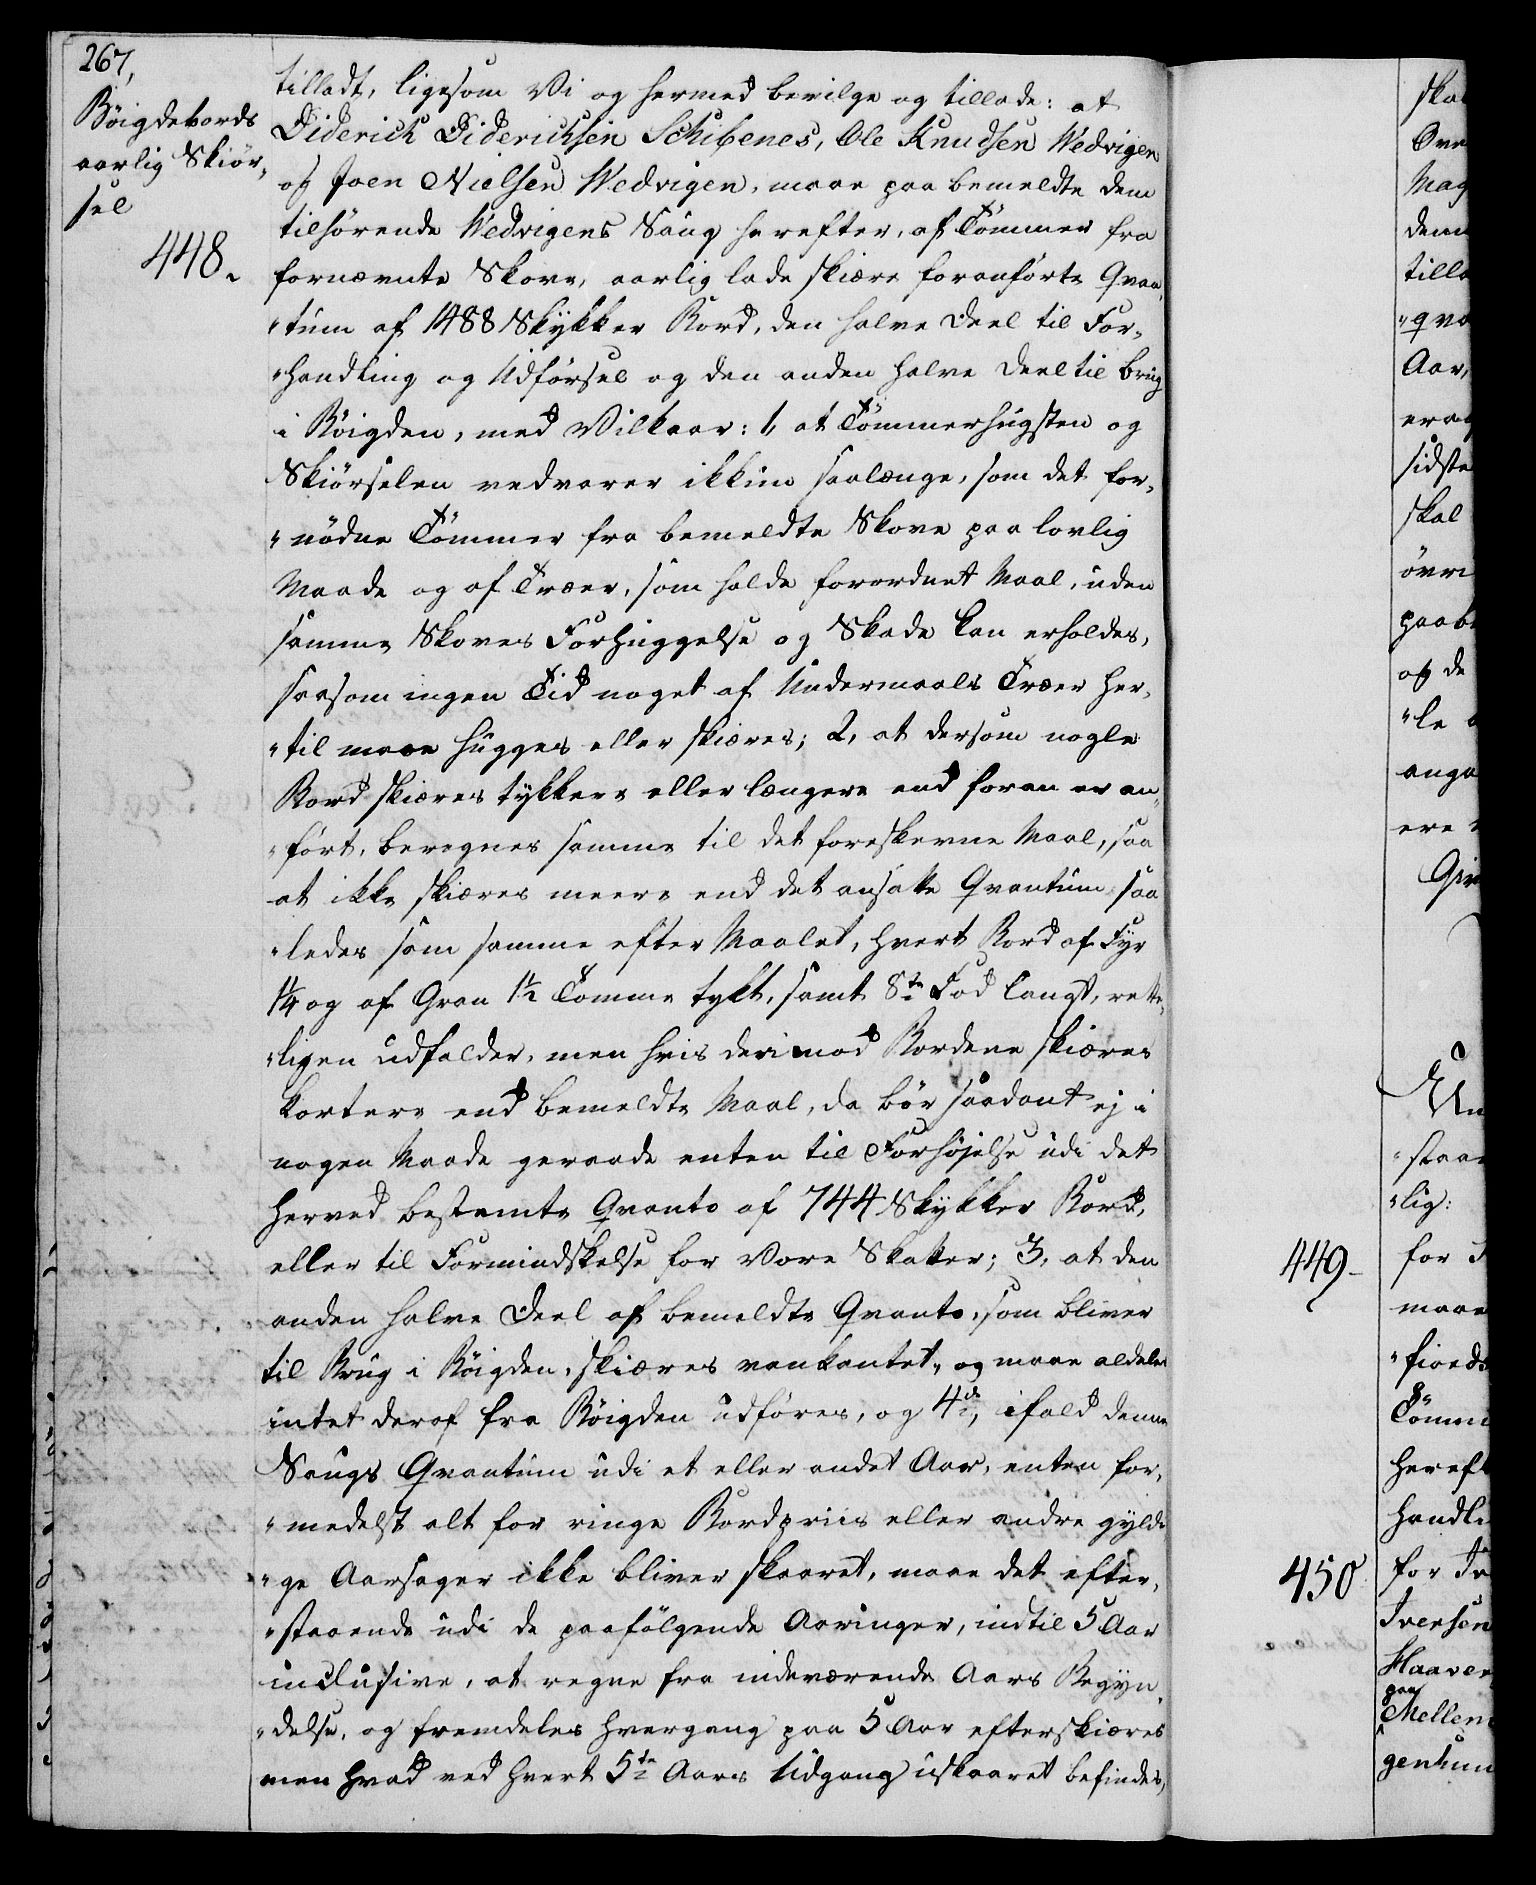 267,
Böigdebords
aarlig Skiör,
sel
448.
tilladt, ligesom Vi og hermed bevilge og tillade: at
Diderich Diderichsen Schibenes, Ole Knudsen Wedvigen
og Joen Nielsen Wedvigen, maae paa bemeldte dem
tilhörende Wedvigens Saug herefter, af Tömmer fra
fornævnte Skove, aarlig lade skiære foranförte Qvan,
"tum af 1488 Stykker Bord, den halve Deel til For,
"handling og Udförsel og den anden halve Deel til brug
i Böigden, med Vilkaar: 1, at Tömmerhugsten og
Skiörselen vedvarer ikkun saalænge, som det for,
"nödne Tömmer fra bemeldte Skove paa lovlig
Maade og af Træer, som holde forordnet Maal, uden
samme Skoves Forhuggelse og Skade kan erholdes,
saasom ingen Tid noget af Undermaals Træer her,
"til maae hugges eller skiæres; 2, at dersom nogle
Bord skiæres tykkere eller længere end foran er an,
"fört, beregnes samme til det foreskevne Maal, saa
at ikke skiæres meere end det ansatte Qvantum saa
"ledes som samme efter Maalet, hvert Bord af Fyr
1¼ og af Gran 1½ Tomme tykt, samt 8te Fod langt, rette,
"ligen udfalder, men hvis derimod Bordene skiæres
kortere end bemeldte Maal, da bör saadant ej i
nogen Maade geraade enten til Forhöjelse udi det
herved bestemte Qvanto af 744 Stykker Bord,
eller til Formindskelse for Vore Skatter; 3, at den
anden halve Deel af bemeldte Qvanto, som bliver
til Brug i Böigden, skiæres vankantet, og maae aldeles
intet deraf fra Böigden udföres, og 4de, ifald denne
Saugs Qvantum udi et eller andet Aar, enten for,
"medelst alt for ringe Bordpriis eller andre gyldi
"ge Aarsager ikke bliver skaaret, maae det efter,
"staaende udi de paafölgende Aaringer, indtil 5 Aar
inclusive, at regne fra indeværende Aars Begyn,
"delse, og fremdeles hvergang paa 5 Aar efterskiæres
men hvad ved hvert 5te Aars Udgang uskaaret befindes,
449
450
Mag
tilla
Aar,
sidste
skal
og de
"le
anga
ere
"lig:
for
maae
Tömm
hereft
handli
for Iv
Iversen
Haaver
paa
Mellem
genhun